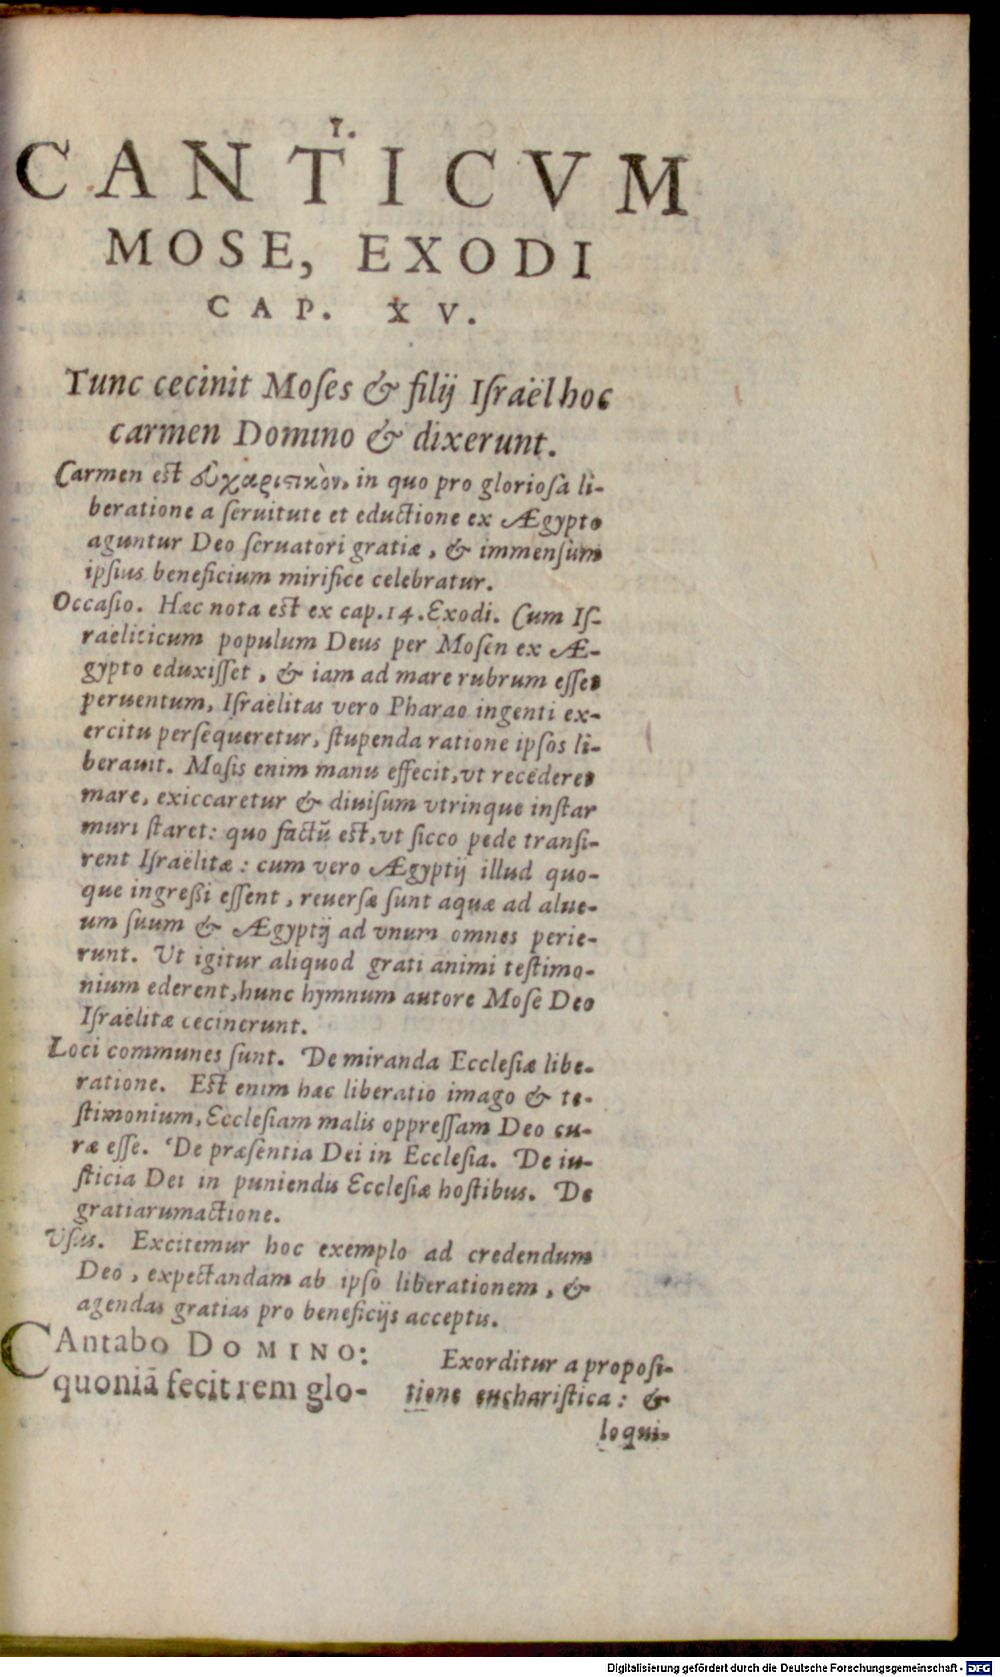 1.
CANTICVM
MOSE, EXODI
CAP. XV.
Tunc cecinit Moſes & filij Iſraël hoc
carmen Domino & dixerunt.
Carmen est ἐυχαριστικὸν, in quo pro glorioſa li-
beratione a ſeruitute et eductione ex Ægypto
aguntur Deo ſeruatori gratiæ, & immenſum
ipſius beneficium mirifice celebratur.
Occaſio. Hæc nota est ex cap. 14. Exodi. Cum Iſ-
raeliticum populum Deus per Moſen ex Æ-
gypto eduxiſſet, & iam ad mare rubrum eſſet
peruentum, Iſraëlitas vero Pharao ingenti ex-
ercitu perſequeretur, ſtupenda ratione ipſos li-
berauit. Moſis enim manu effecit, vt recederet
mare, exiccaretur & diuiſum vtrinque inſtar
muri ſtaret: quo factũ est, vt ſicco pede tranſi-
rent Iſraëlitæ: cum vero Ægyptij illud quo-
que ingreßi eſſent, reuerſæ ſunt aquæ ad alue-
um ſuum & Ægyptij ad vnum omnes perie-
runt. Ut igitur aliquod grati animi teſtimo-
nium ederent, hunc hymnum autore Moſe Deo
Iſraëlitæ cecinerunt.
Loci communes ſunt. De miranda Eccleſiæ libe-
ratione. Est enim hæc liberatio imago & te-
ſtimonium, Eccleſiam malis oppreſſam Deo cu-
ræ eſſe. De præſentia Dei in Eccleſia. De iu-
ſticia Dei in puniendis Eccleſiæ hoſtibus. De
gratiarumactione.
Uſus. Excitemur hoc exemplo ad credendum
Deo, expectandam ab ipſo liberationem, &
agendas gratias pro beneficijs acceptis.
CAntabo DOMINO:
quoniã fecit rem glo-
Exorditur a propoſi-
tione euchariſtica: &
loqui-
Digitalisierung gefördert durch die Deutsche Forschungsgemeinschaft - DFG